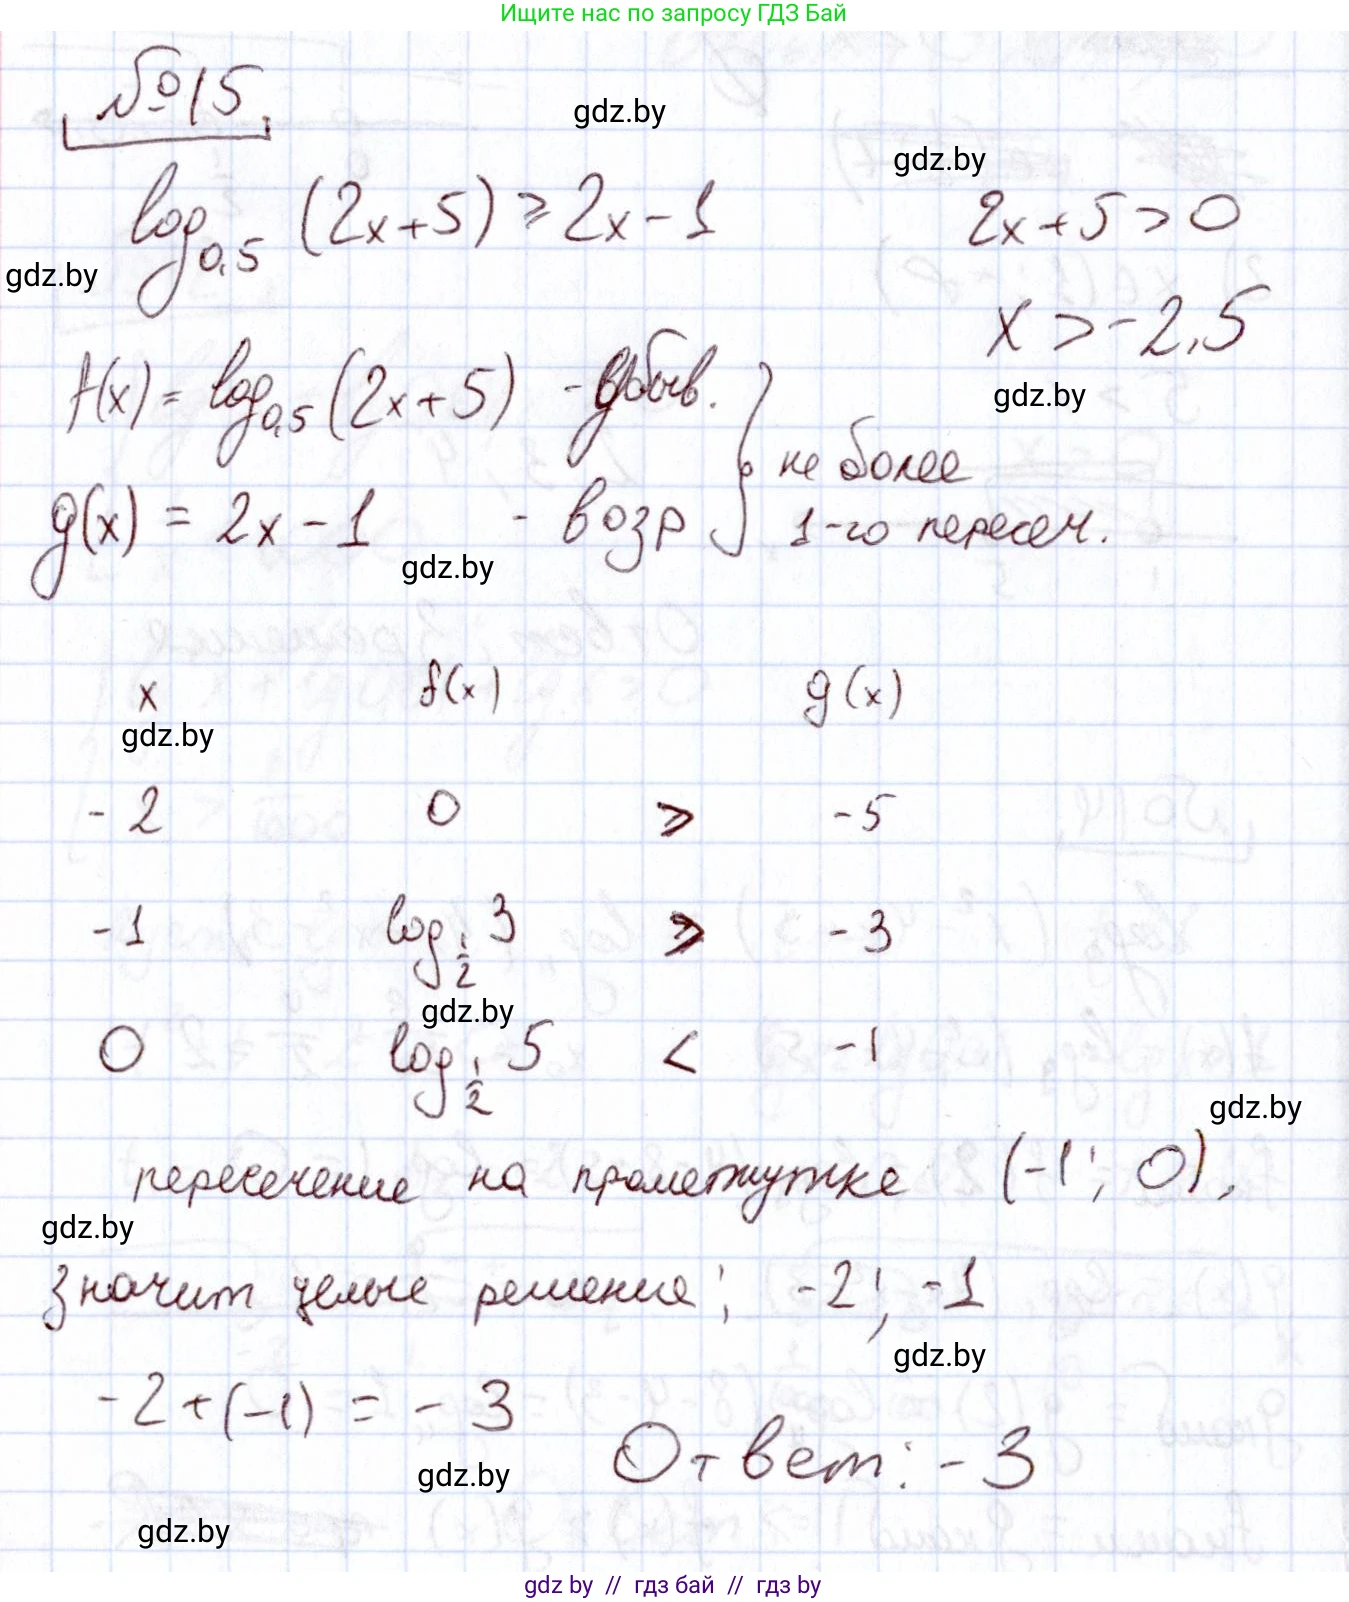 Ищите нас по запросу ГДЗ Бай
№15
gdz.by
gdz.by
log₀,₅ (2x+5) ⩾ 2x-1
2x+5>0
gdz.by
x>-2,5
f(x) = log₀,₅ (2x+5) - убыв.
gdz.by
не более
g(x) = 2x-1 - возр
1-го пересеч.
gdz.by
x f(x) g(x)
gdz.by
-2 0 ⩾ -5
-1 log½ 3 ⩾ -3
gdz.by
0 log½ 5 < -1
gdz.by
пересечение на промежутке (-1; 0),
gdz.by
значит целые решение: -2; -1
gdz.by
-2+(-1) = -3
Ответ: -3
gdz.by
gdz.by
gdz by // гдз бай // гдз by